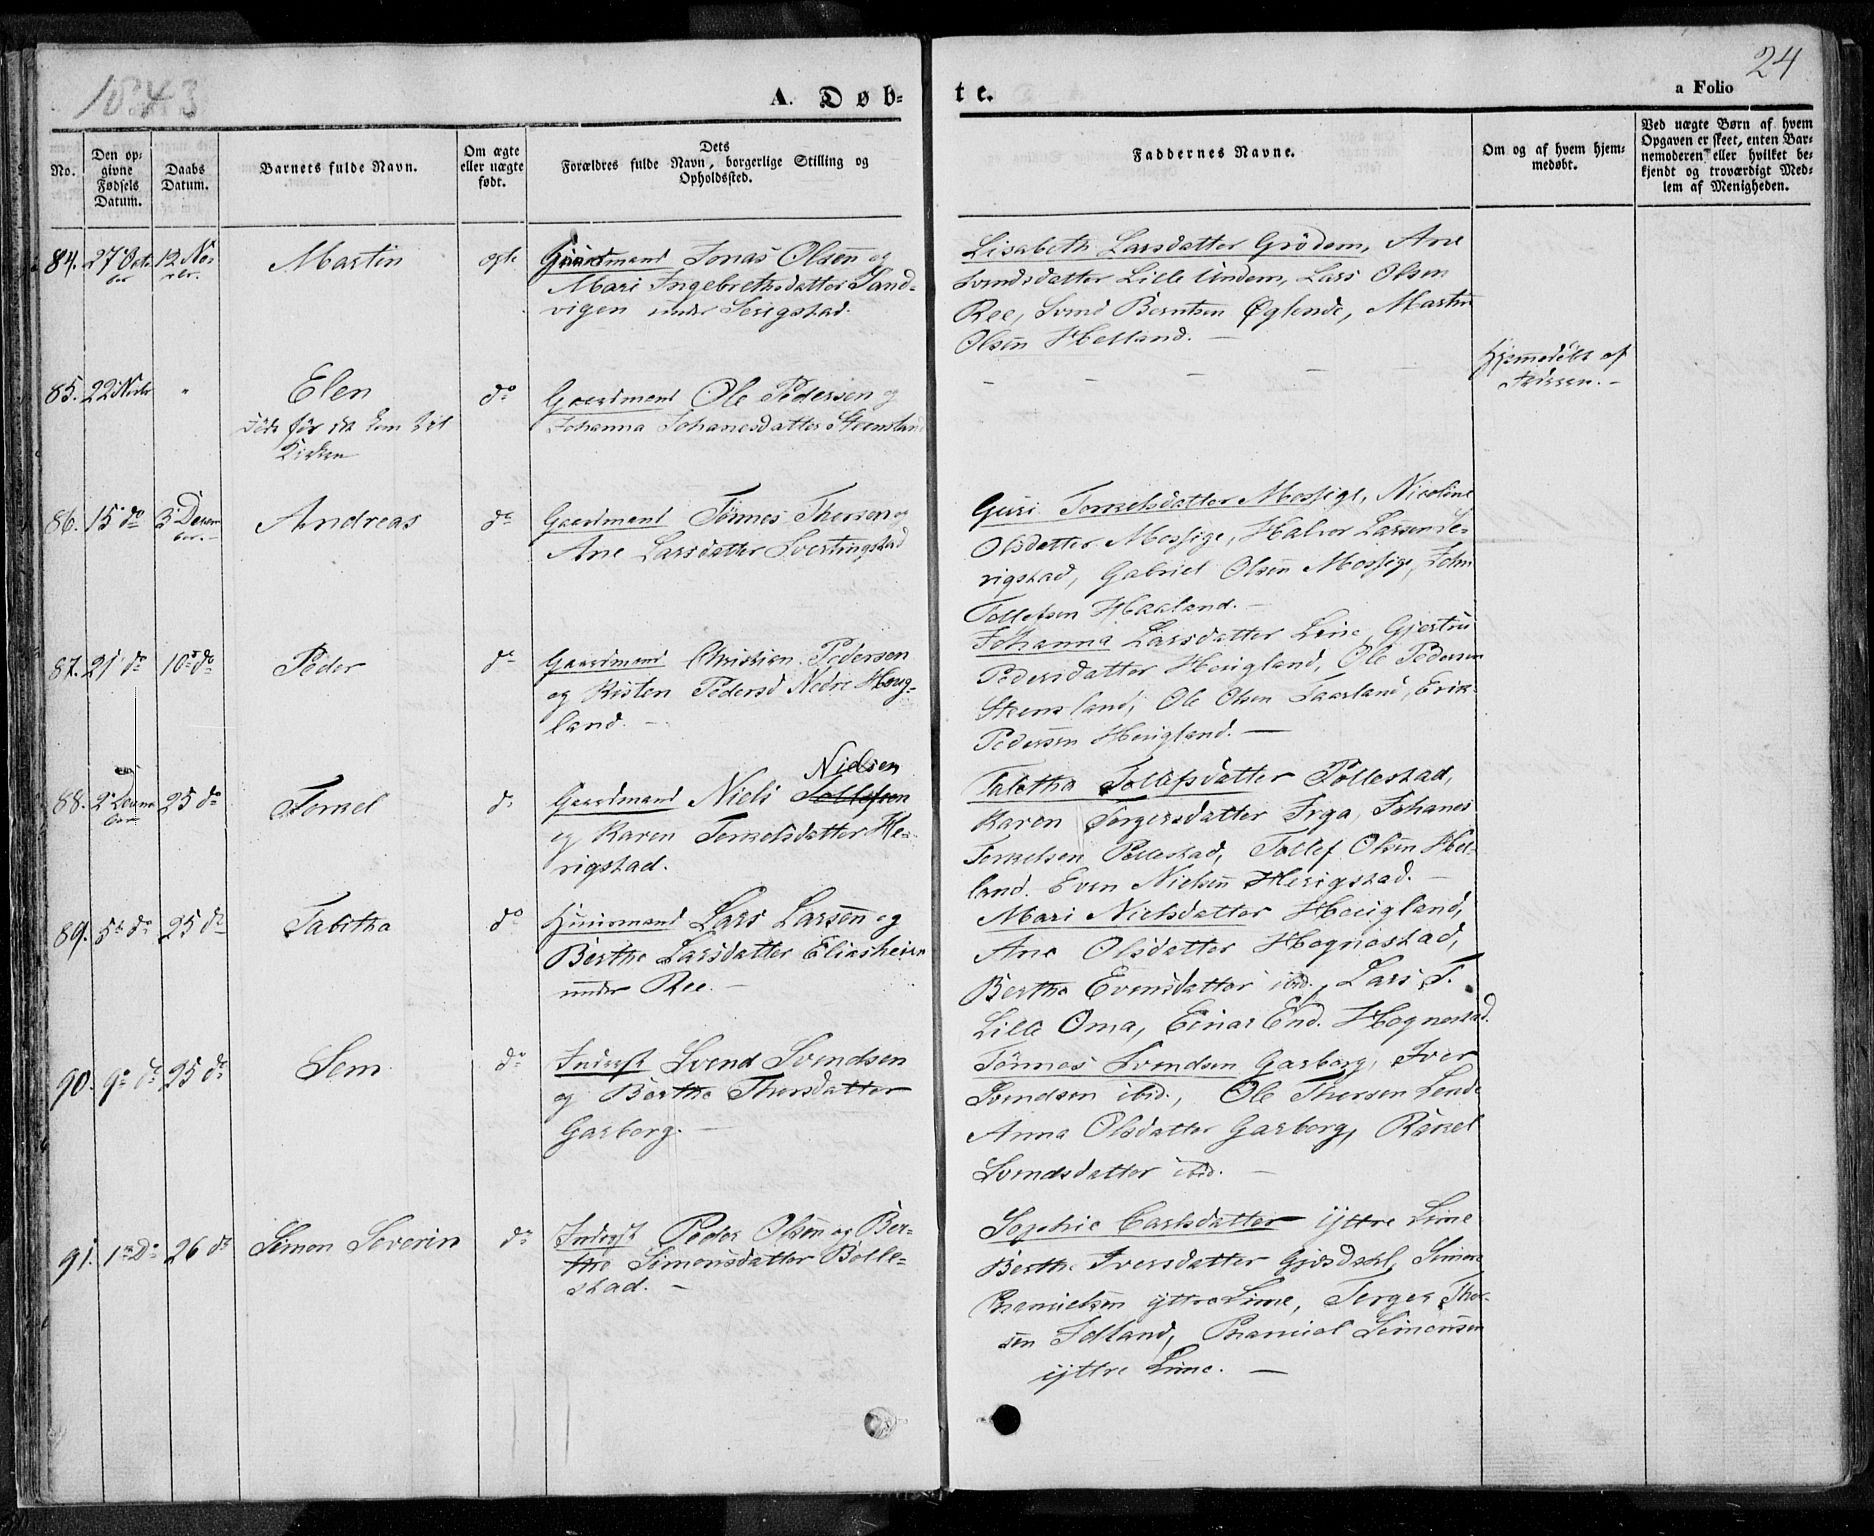 1843
24
A. Døb-
te.
a Folio
No.
Den op-
givne
Fødsels
Datum.
Daabs
Datum.
Barnets fulde Navn.
Om ægte
eller uægte
født.
Dets
Forældres fulde Navn, borgerlige Stilling og
Opholdssted.
Faddernes Navne.
Om og af hvem hjem-
medøbt.
Ved uægte Børn af hvem
Opgaven er skeet, enten Bar-
nemoderen eller hvilket be-
kjendt og troværdigt Med-
lem af Menigheden.
84. 27 Octo
ber
12 No
ver.
Martin
ægte
Gaardmand Jonas Olsen og
Mari Ingebretsdatter Sand-
vigen under Serigstad.
Lisabeth Larsdatter Grødem, Ane
Svendsdatter Lille Undem, Lars Olsen
Ree, Svend Berntsen Øglende, Martin
Olsen Helland. -
85. 22 Novbr "
Elen
Døde før det kom til
Kirken
do
Gaardmand Ole Pedersen og
Johanna Johanesdatter Steensland
- - - - -
Hjemmedøbt af
Faderen. -
86. 15 do 3 Decem
ber. -
Andreas
do
Gaardmand Tönnes Thorsen og
Ane Larsdatter Svertingstad
Guri Torkelsdatter Mossige, Nicoline
Olsdatter Mossige, Halvor Larsen Se-
rigstad, Gabriel Olsen Mossige, John
Tollefsen Haaland. -
87. 21 do 10 do
Peder
do
Gaardmand Christian Pedersen
og Kisten Pedersd Nedre Houg-
land. -
Johanna Larsdatter Line, Gjertru
Pedersdatter Hougland, Ole Pedersen
Steensland, Ole Olsen Taarland, Erik
Pedersen Hougland. -
88. 2 Decem
ber
25 do
Torkel
do
Nielsen
Gaardmand Niels Tollefsen
og Karen Torkelsdatter He-
rigstad.
Tabitha Tollefsdatter Pollestad,
Karen Torgersdatter Frga, Johanes
Torkelsen Pollestad, Tollef Olsen Hel-
land. Even Nielsen Herigstad. -
89. 5 do 25 do
Tabitha
do
Huusmand Lars Larsen og
Berthe Larsdatter Eliasheien
under Ree. -
Mari Nielsdatter Hougland,
Ane Olsdatter Hognestad,
Berthe Evensdatter ibid., Lars T.
Lille Oma, Einar End. Hognestad.
90. 9 do 25 do
Sem
do
Inderst Svend Svendsen
og Berthe Thorsdatter
Garborg. -
Tönnes Svendsen Garborg, Iver
Svendsen ibid., Ole Thorsen Lende
Anna Olsdatter Garborg, Rakel
Svendsdatter ibid. -
91. 1 Do 26 do
Simon Severin
do
Inderst Peder Olsen og Ber-
the Simonsdatter Bolle-
stad. -
Sophie Carlsdatter ÿttre Lime
Berthe Iversdatter Gjøsdahl, Simon
ÿttre Lime, Torger Thor-
sen Idland, Simonsen
ÿttre Lime. -